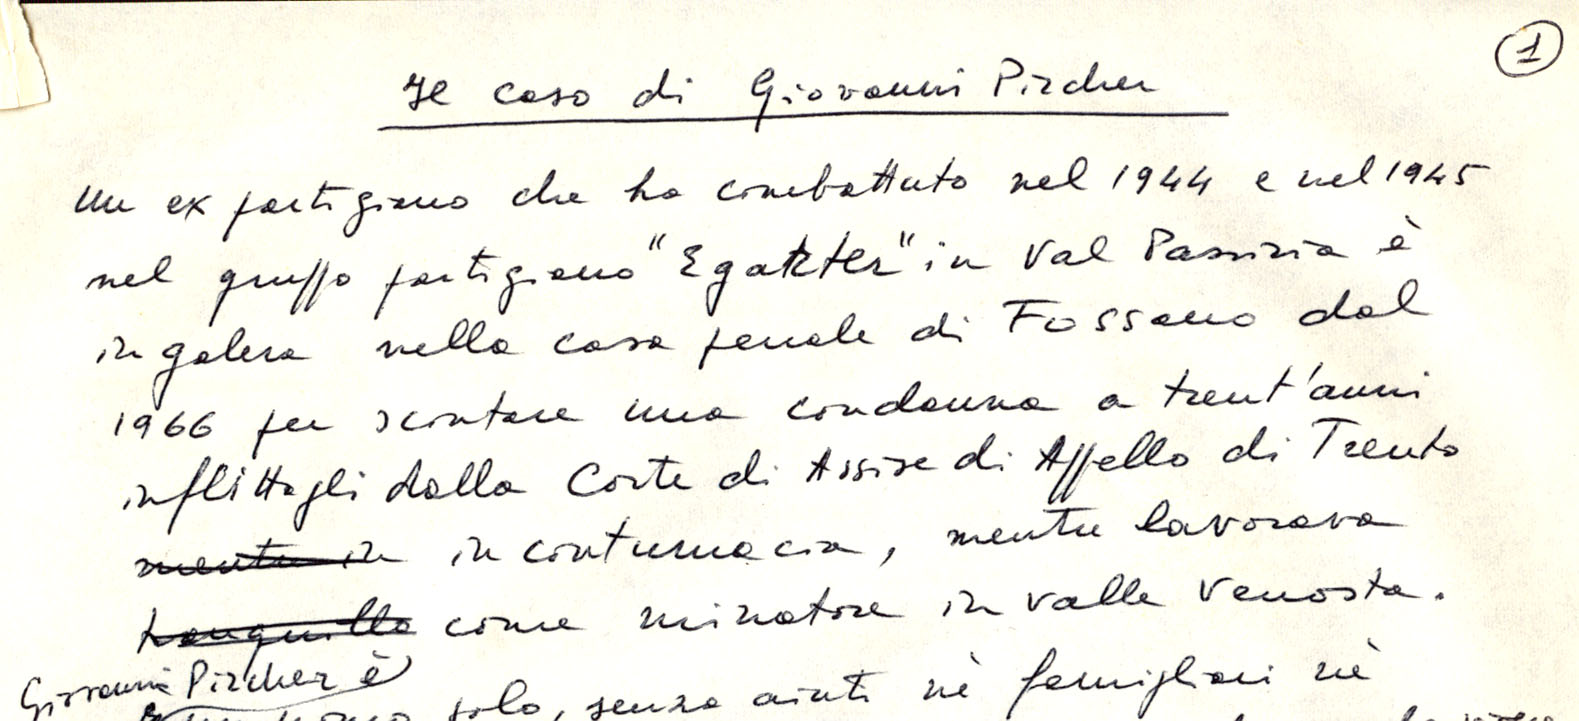 1
Il caso di Giovanni Pircher
Un ex partigiano che ha combattuto nel 1944 e nel 1945
nel gruppo partigiano "Egarter" in Val Passiria è
in galera nella casa penale di Fossano dal
1966 per scontare una condanna a trent'anni
inflittagli dalla Corte di Assise di Appello di Trento
mentre in in contumacia, mentre lavorava
tranquillo come minatore in valle Venosta.
Giovanni Pircher è
un uomo solo, senza aiuti nè famigliari nè